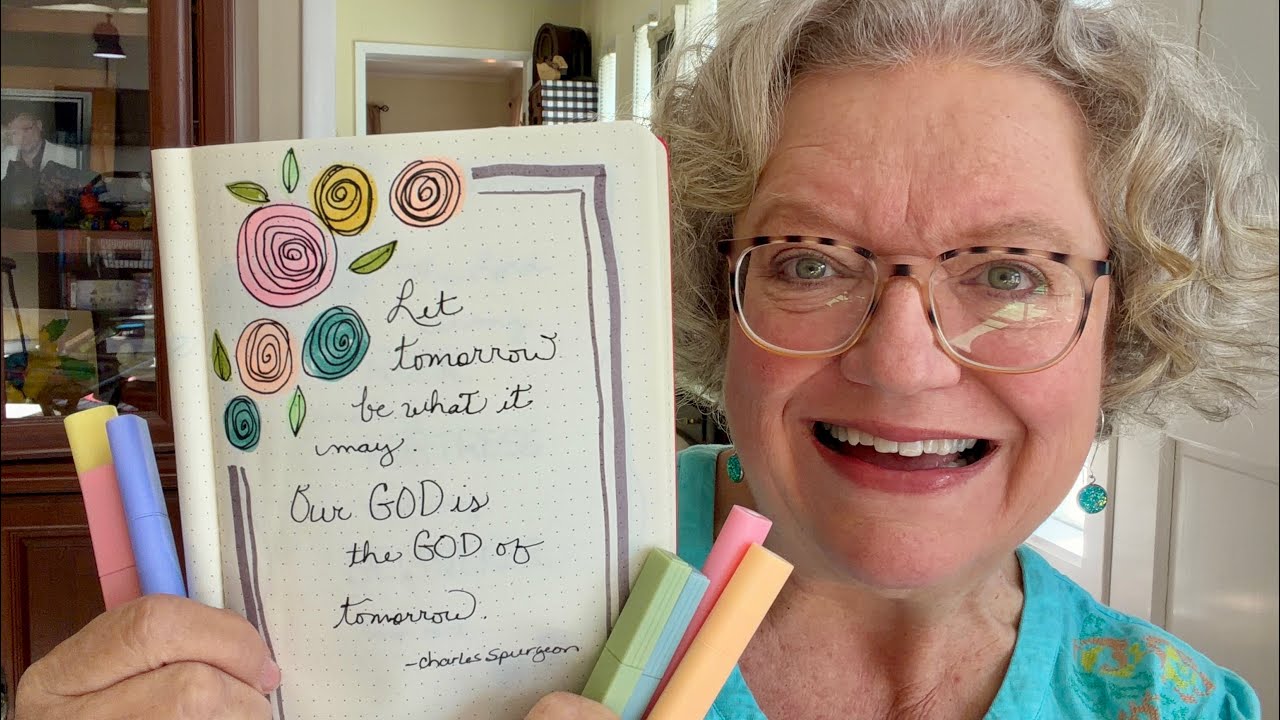 Let
tomorrow
be what it
may.
Our GOD is
the GOD of
tomorrow.
-charles spurgeon